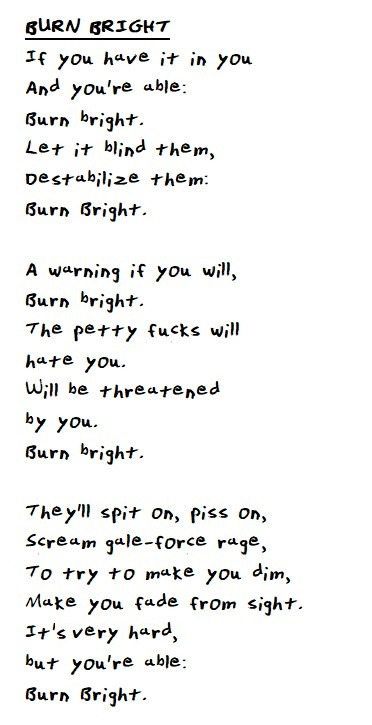 BURN BRIGHT
If you have it in you
And you're able:
Burn bright.
Let it blind them,
Destabilize them:
Burn Bright.

A warning if you will,
Burn bright.
The petty fucks will
hate you.
Will be threatened
by you.
Burn bright.

They'll spit on, piss on,
Scream gale-force rage,
To try to make you dim,
Make you fade from sight.
It's very hard,
but you're able:
Burn Bright.